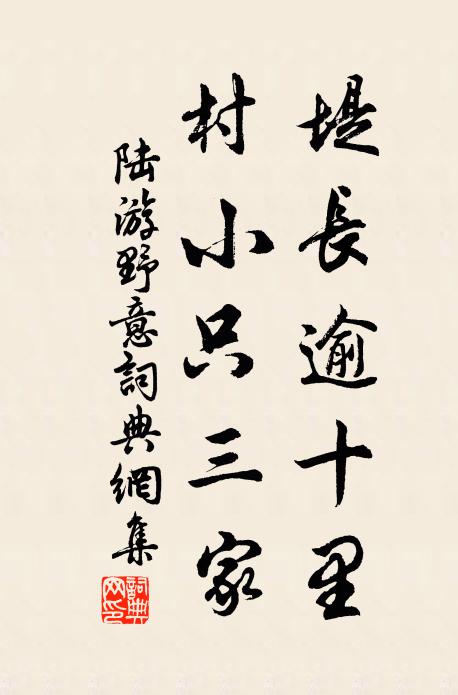 堤長逾十里
村小只三家
陆游野意詞典網集
詞典
网印